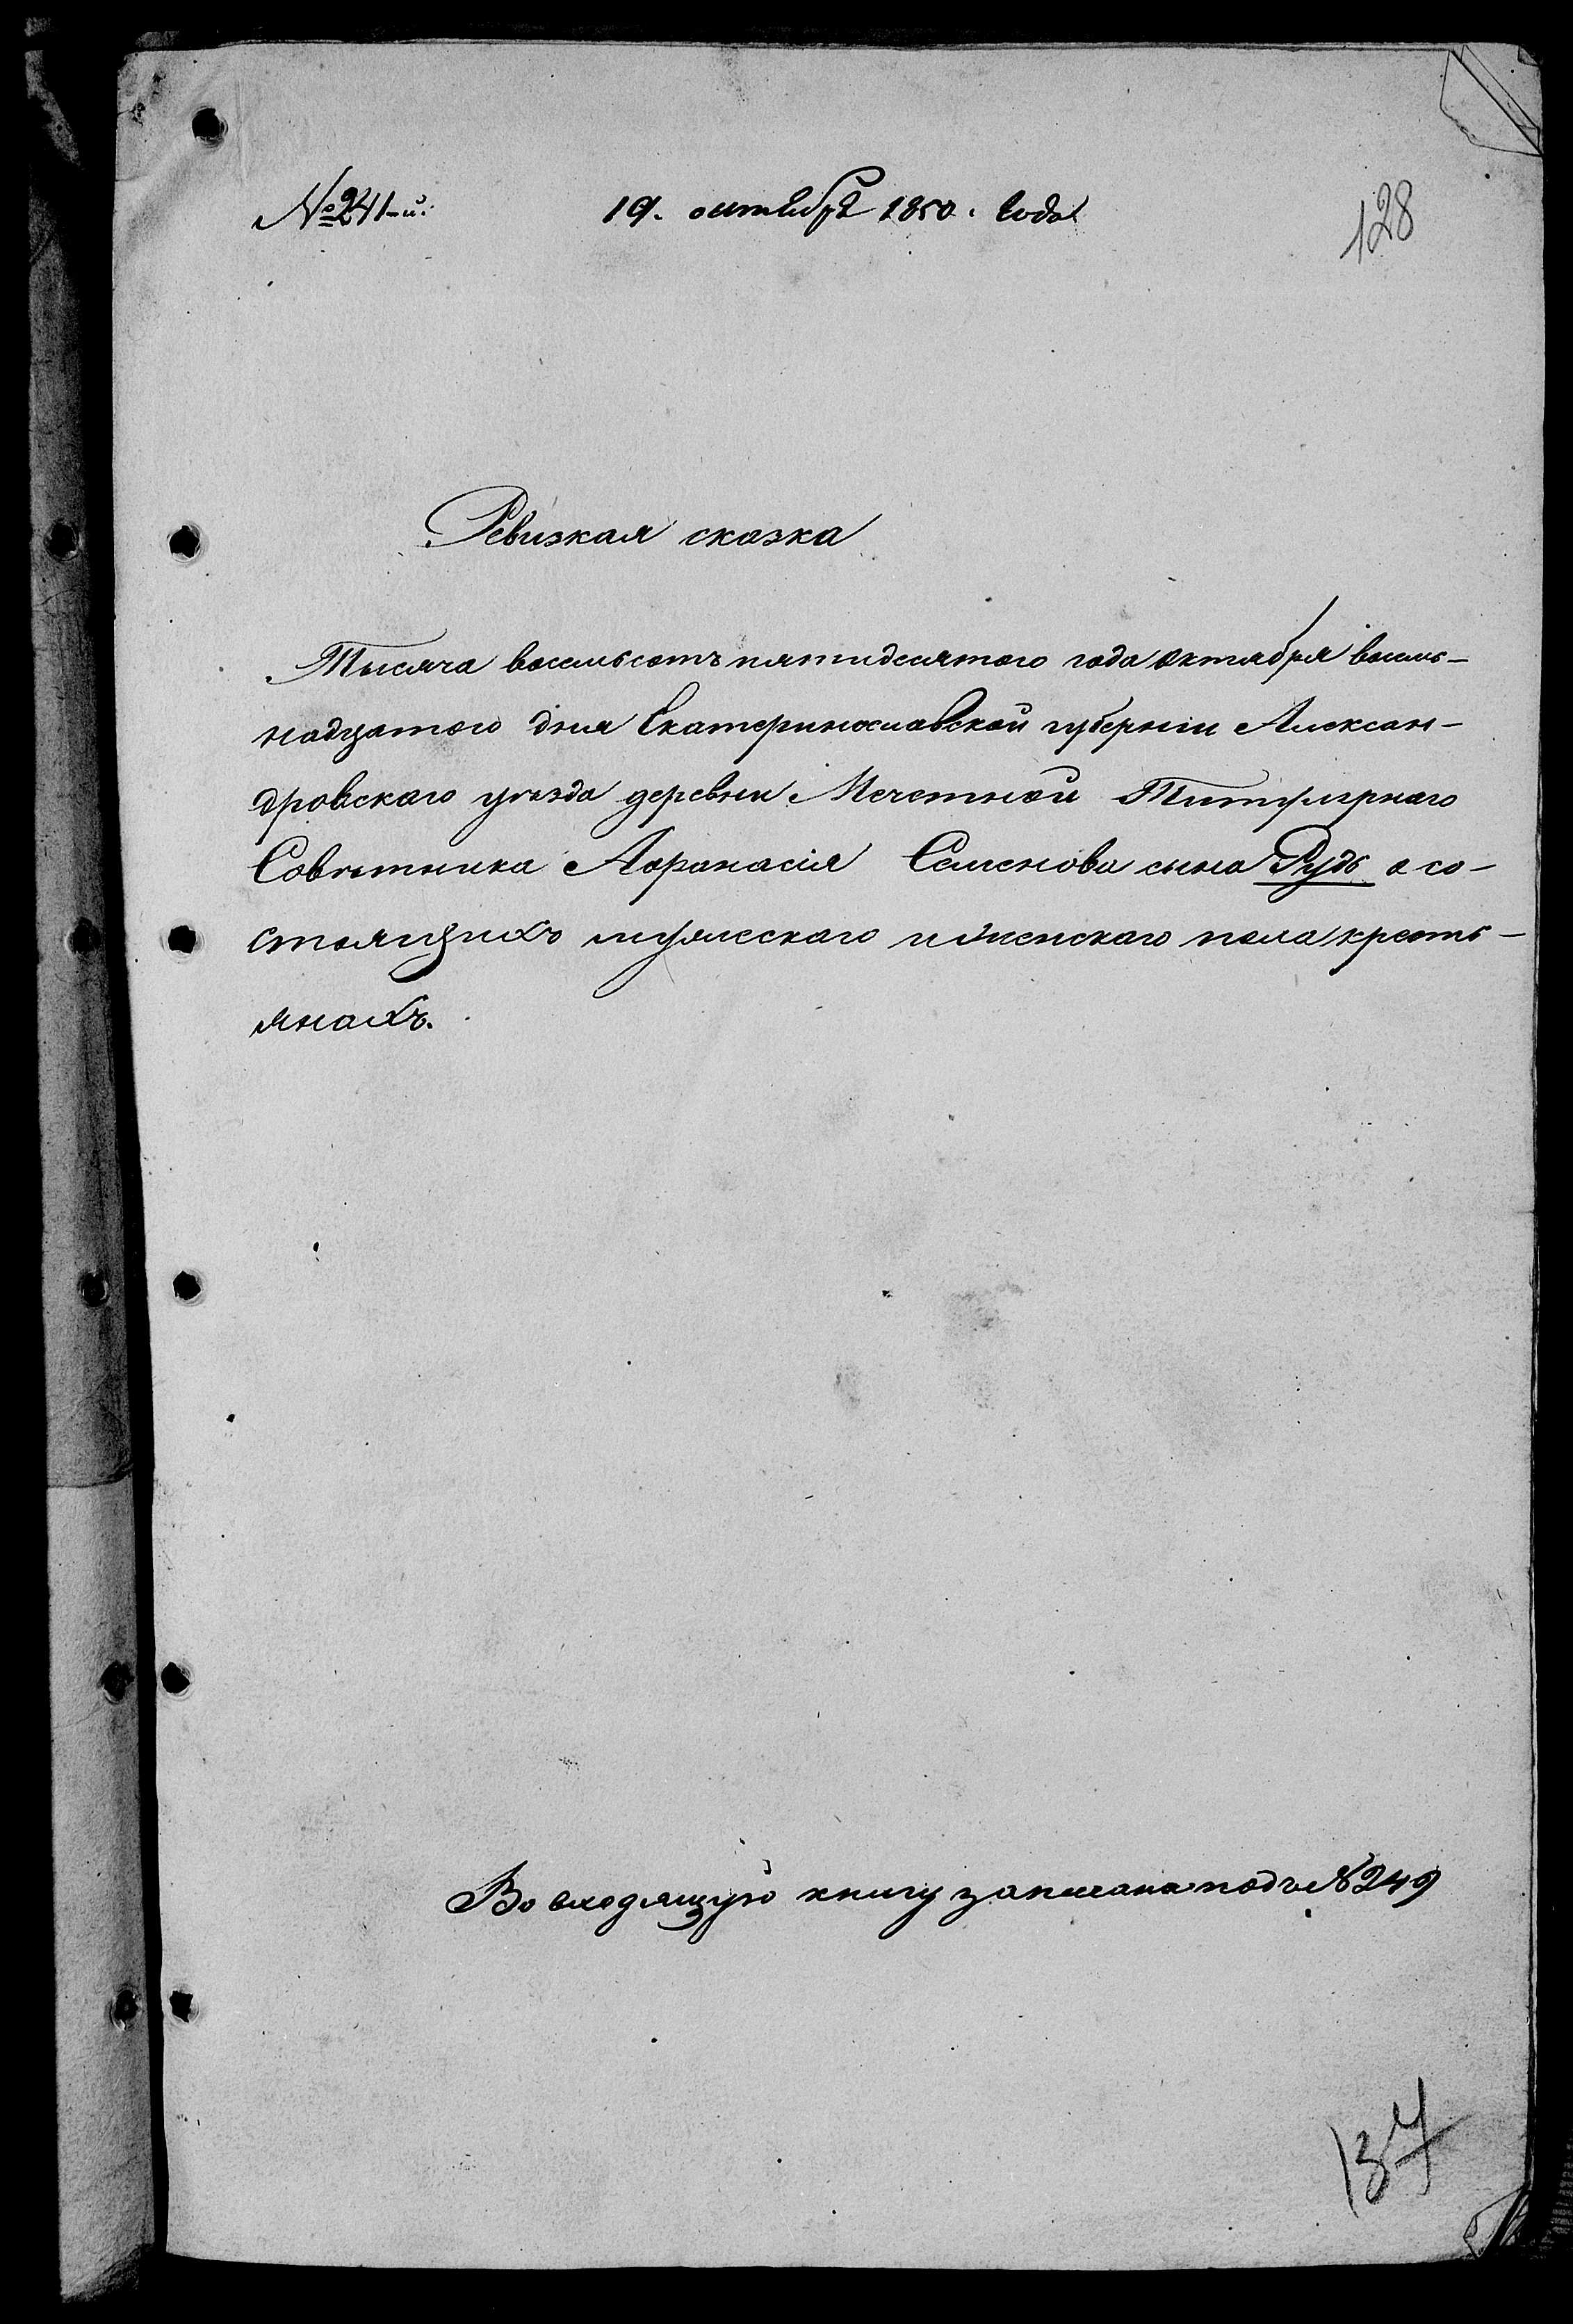 №241-й. 19. октября 1850. года 128
Ревизкая сказка
Тысяча восемьсотъ пятидесятого года октября восемь-
надцатого дня Екатеринославской губернии Алексан-
дровскаго уѣзда деревни Мечетной Титулярнаго
Совѣтника Афранасія Семенова сына Рудь о со-
стоящихъ мужескаго и женскаго пола кресть-
янахъ.
Во входящую книгу записана подъ №249
137